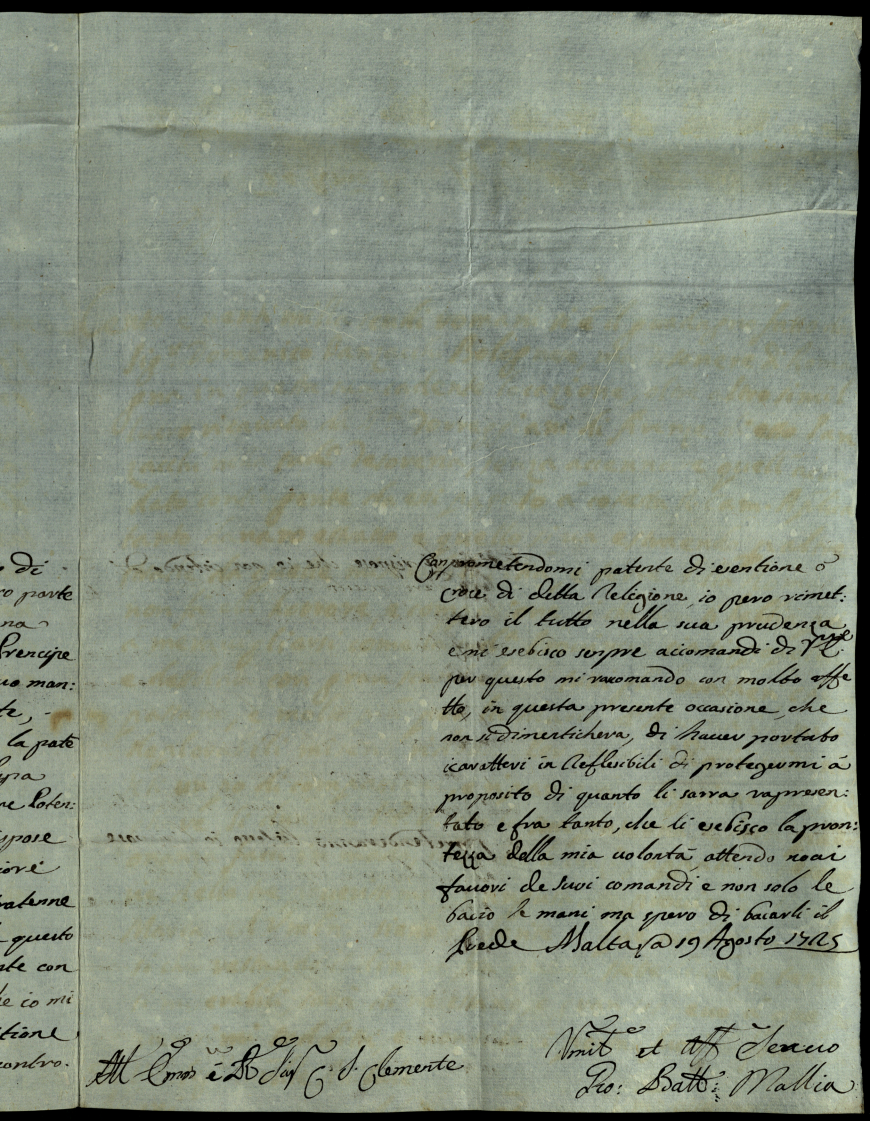 o di
co parte
na
Prencipe
uo man:
te, -
la pate
pra
re Poten:
spose
iore
ratenne
questo
nte con
he io mi
itione
contro.
Comprometendomi patente di esentione ò
croce di detta Religione, io pero rimet:
tero il tutto nella sua prudenza
e mi esebisco senpre accomandi di
per questo mi racomando con molto affe
tto, in questa presente occasione, che
non si dimenticherà, di hauer portato
icaratteri in Reflesibili di protegermi à
proposito di quanto li sarra rapresen:
tato e fra tanto, che li esebisco la pron:
tezza della mia uolontà, attendo
fauori de suoi comandi e non solo le
bacio le mani ma spero di baciarli il
Piede Malta 19 Agosto 1725
Vmil.e et Aff Seruo
Gio: Batt: Mallia
All Emo è R Sig C. S. Clemente